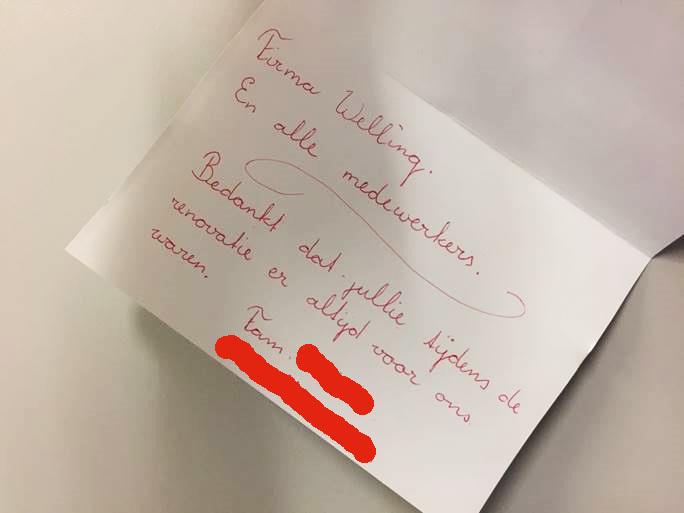 Firma Welling.
En alle medewerkers.
Bedankt dat jullie tijdens de
renovatie er altijd voor ons
waren.
Fam.